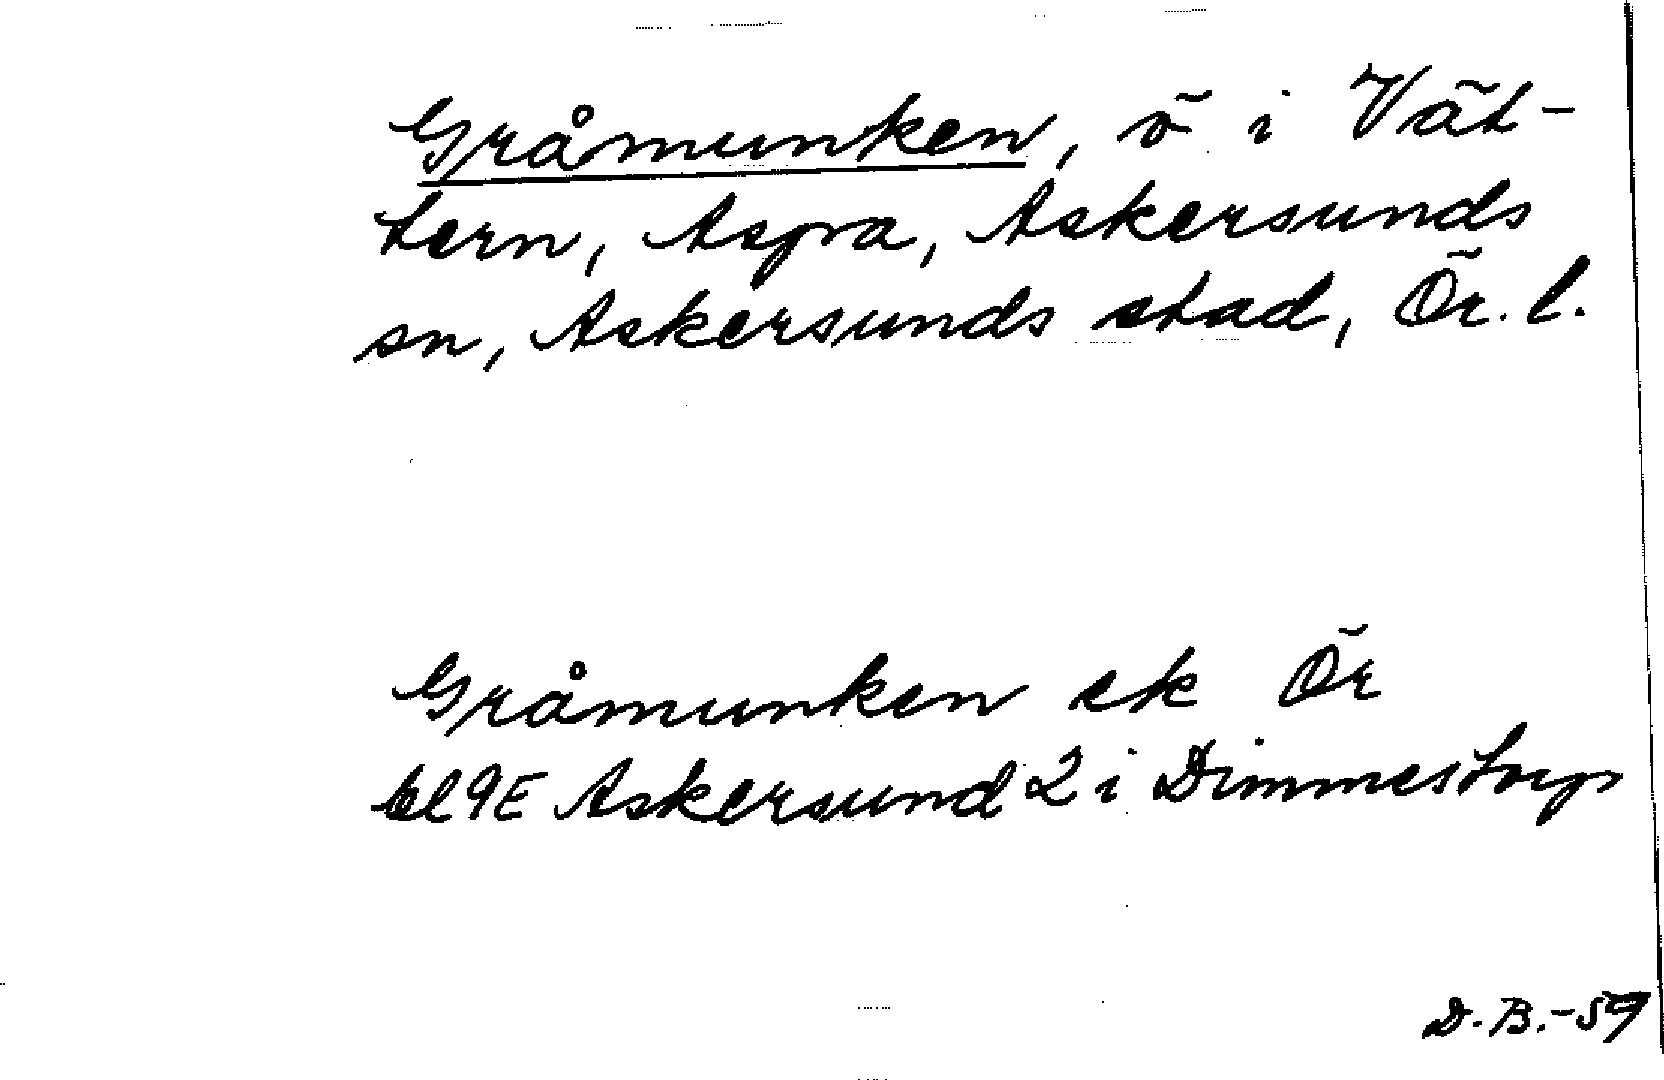 Gråmunken, ö i Vät-
tern, Aspa, Askersunds
sn, Askersunds stad, Ör. l.
Gråmunken ek Ör
bl 9E Askersund 2 i Dimmestorp
D. B. -59